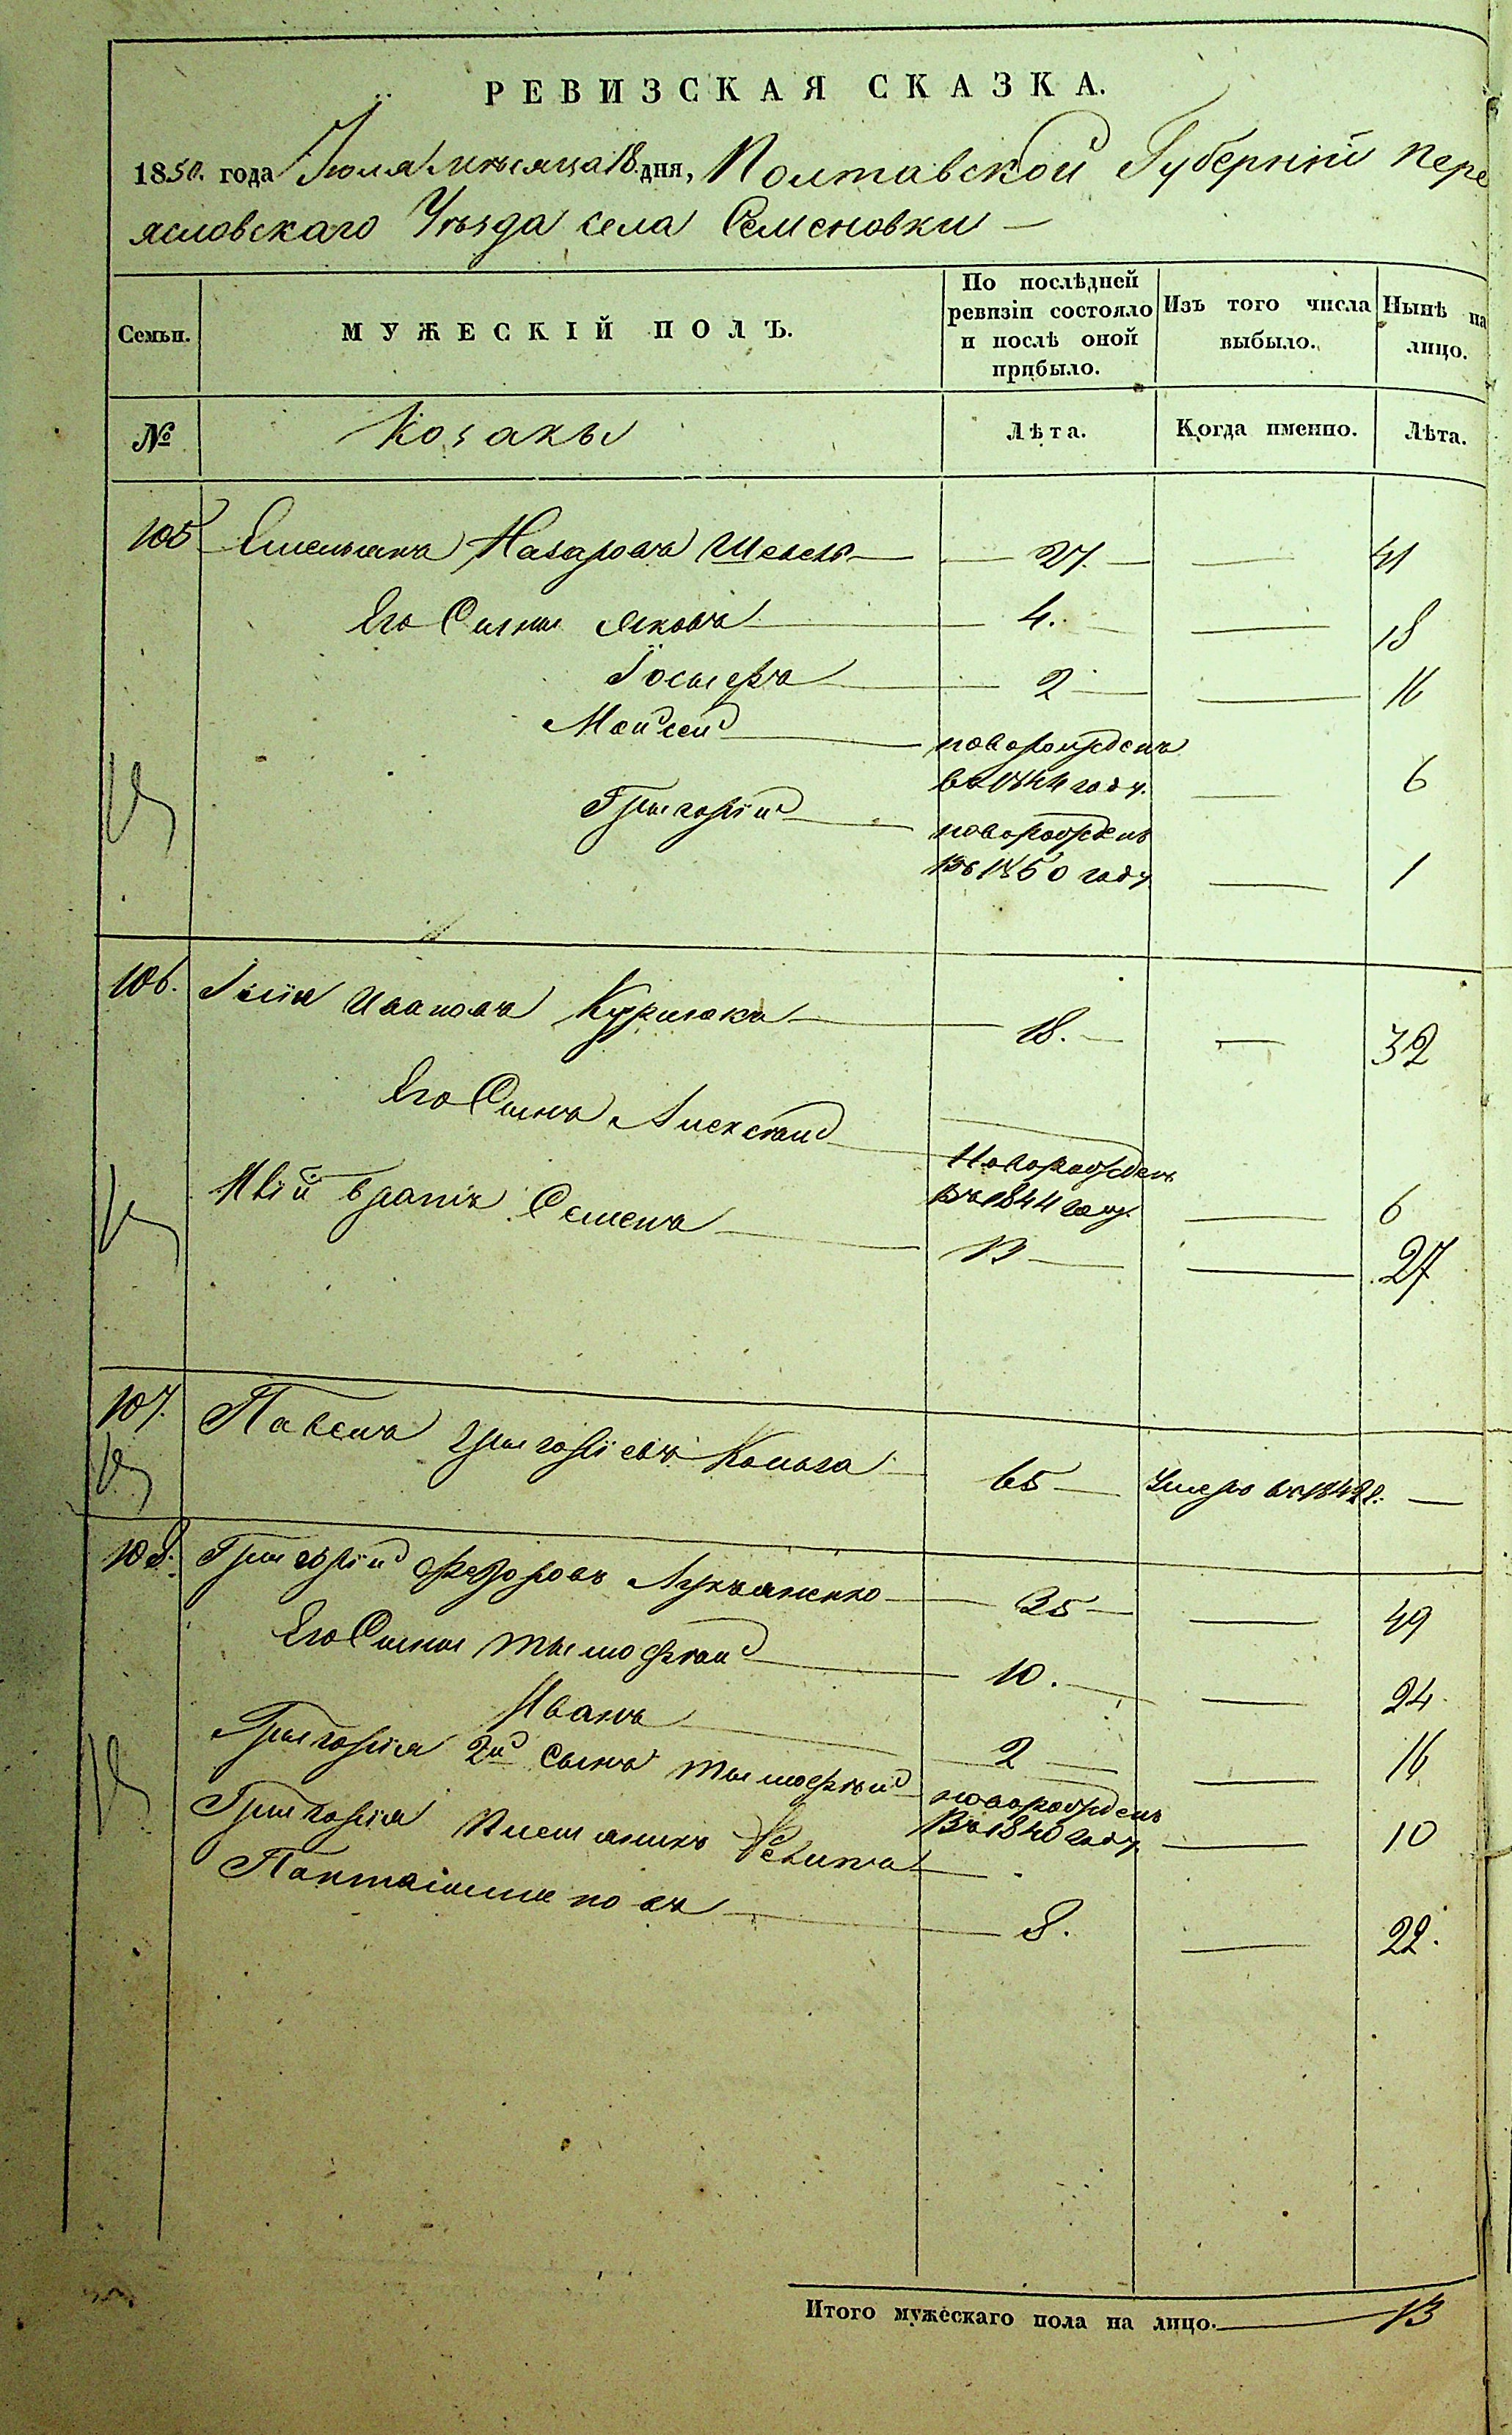 РЕВИЗСКАЯ СКАЗКА.
1850. года Іюля мѣсяца 18 дня, Полтавской Губерніи Пере
яславскаго Уѣзда села Семеновки —
Семьи.
МУЖЕСКІЙ ПОЛЪ.
По послѣдней ревизіи состояло и послѣ оной прибыло.
Изъ того числа выбыло.
Нынѣ на лицо.
№ Козаки Лѣта. Когда именно. Лѣта.
105 Емельянъ Назаровъ — 27. — — 41
Его Сыны Яковъ — 4. — — 18
Іосифъ — 2 — — 16
Моисей — новорожденъ
въ 1844 году. — 6
Григорій — новорожденъ
въ 1850 году — 1
106. Илія Ивановъ — 18. — — 32
Его Сынъ Алексѣй — Новорожденъ
въ 1844 году. — 6
братъ Семенъ — 13 — — 27
107. Павелъ Григоріевъ — 65 — Умеръ въ 1842 г. —
108. Григорій Федоровъ Лукьяненко — 35 — — 49
Его Сыны Тимофѣй — 10. — — 24.
Иванъ — 2 — — 16
Григорія 2й Сынъ Тимофѣй — новорожденъ
Въ 1840 году. — 10
Григорія Племянникъ —
Пантелимоновъ — 8. — 22.
Итого мужескаго пола на лицо. — 13